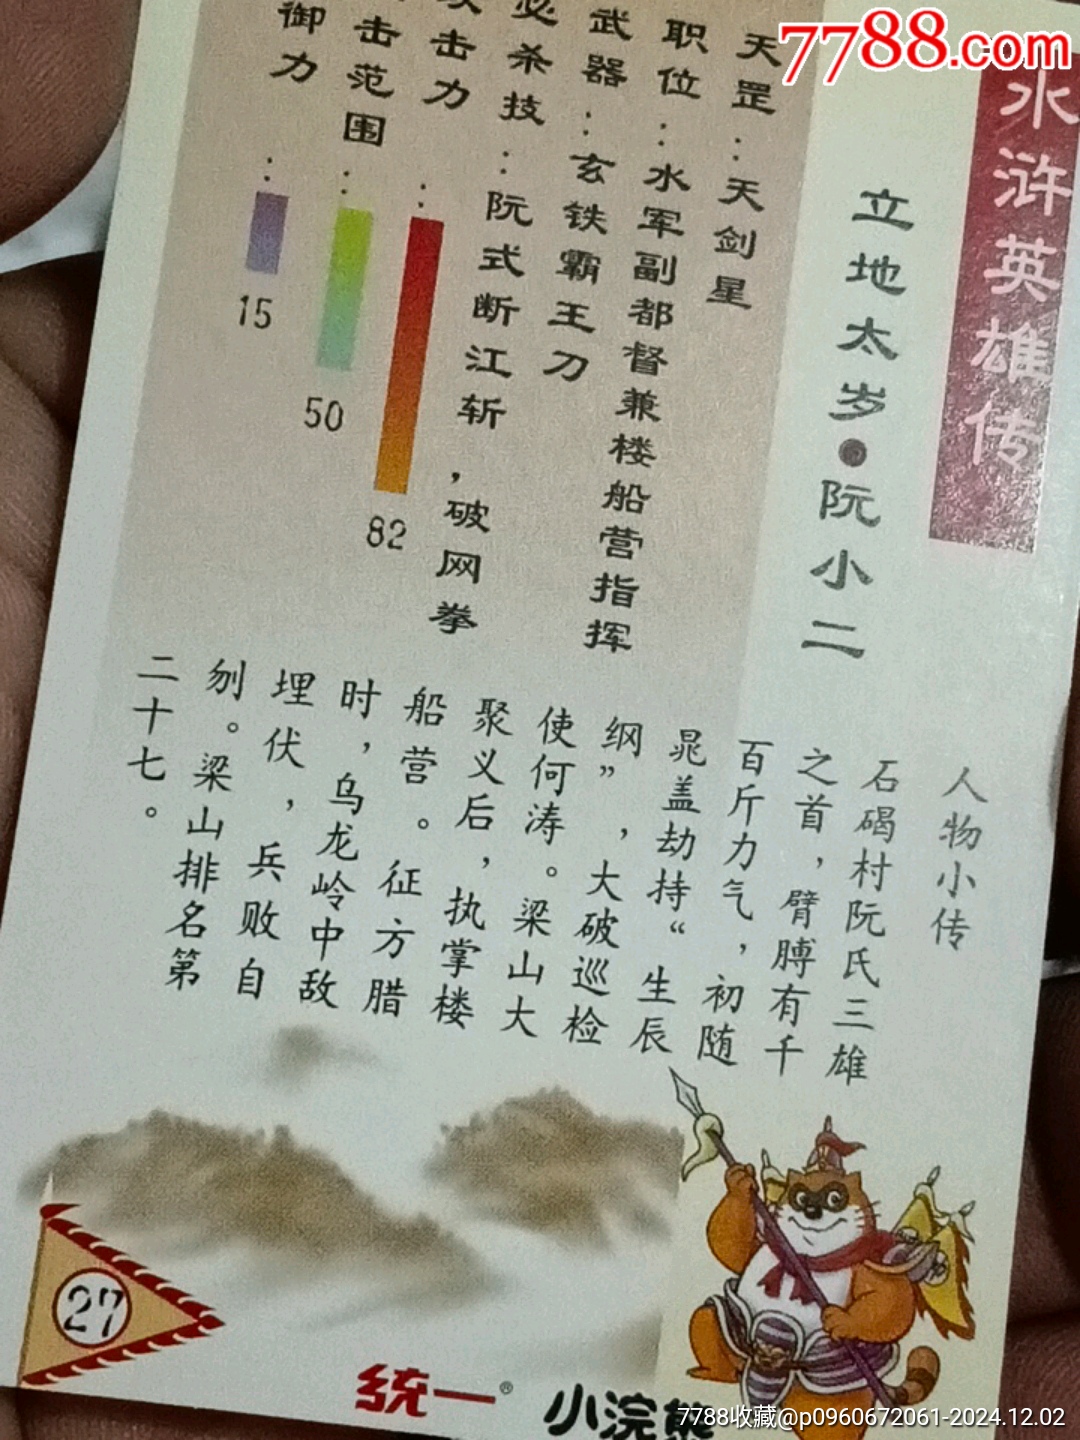 7788.com
水浒英雄传
立地太岁●阮小二
天罡：天剑星
职位：水军副都督兼楼船营指挥
武器：玄铁霸王刀
必杀技：阮式断江斩，破网拳
攻击力：82
击范围：50
御力：15
人物小传
石碣村阮氏三雄
之首，臂膊有千
百斤力气，初随
晁盖劫持“生辰
纲”，大破巡检
使何涛。梁山大
聚义后，执掌楼
船营。征方腊
时，乌龙岭中敌
埋伏，兵败自
刎。梁山排名第
二十七。
27
统一®
小浣熊
7788收藏@p0960672061-2024.12.02